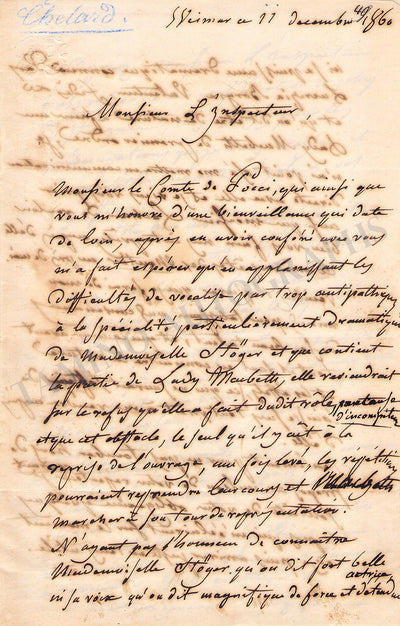 Chelard.
49
Weimar ce 11 decembre 1860
Monsieur L'Inspecteur,
Monsieur le Comte de Pocci, qui ainsi que
vous m'honore d'une bienveillance qui date
de loin, après en avoir conféré avec vous
m'a fait espérer qu'en applanissant les
difficultés de vocalise par trop antipathiques
à la spécialité particulièrement dramatique
de Mademoiselle Stöger et que contient
la partie de Lady Macbeth, elle reviendrait
sur le refus qu'elle a fait dudit rôle pour cause
d'incompétence
et que cet obstacle, le seul qu'il y eût à la
reprise de l'ouvrage, une fois levé, les répétitions
pourraient reprendre leur cours et Macbeth
marcher à son tour de représentation.
N'ayant pas l'honneur de connaître
Mademoiselle Stöger, qu'on dit fort belle
actrice
ni sa voix qu'on dit magnifique de force et d'étendue
TAMINO AUTOGRAPHS